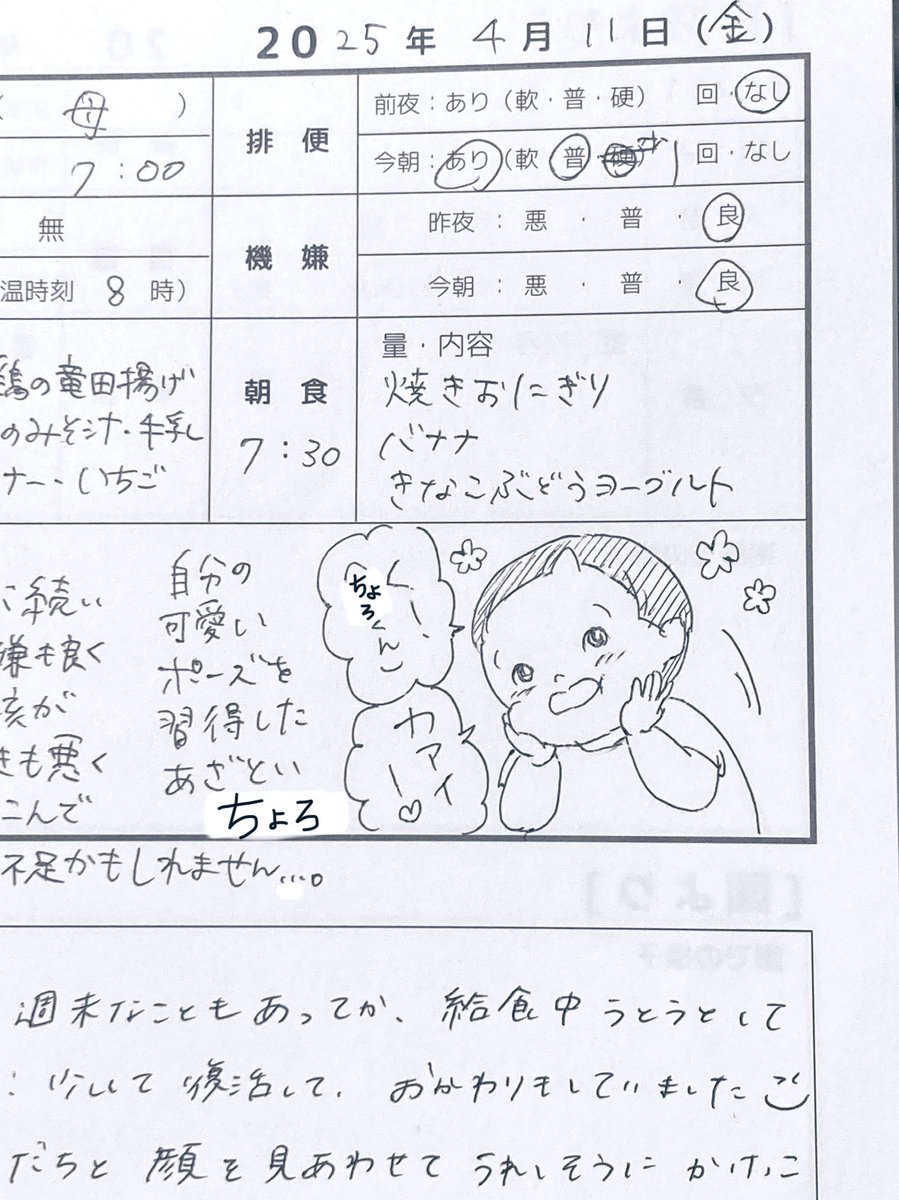 2025年 4月 11日(金)
( 母 )
排便
前夜:あり(軟・普・硬) 回・なし
7:00
今朝:あり(軟 普 硬 少 1 回・なし
無
機嫌
昨夜:悪・普・良
温時刻 8 時)
今朝:悪・普・良
鶏の竜田揚げ
のみそ汁・牛乳
ナー・いちご
朝食
7:30
量・内容
焼きおにぎり
バナナ
きなこぶどうヨーグルト
に続い
嫌も良く
きも悪く
こんで
自分の
可愛い
ポーズを
習得した
あざとい
ちょろ
くぅー、
ちょろくん
カアイー♡
不足かもしれません...。
週末なこともあってか、給食中うとうとして
少しして復活して、おかわりもしていました
だちと顔を見あわせてうれしそうにかけっこ